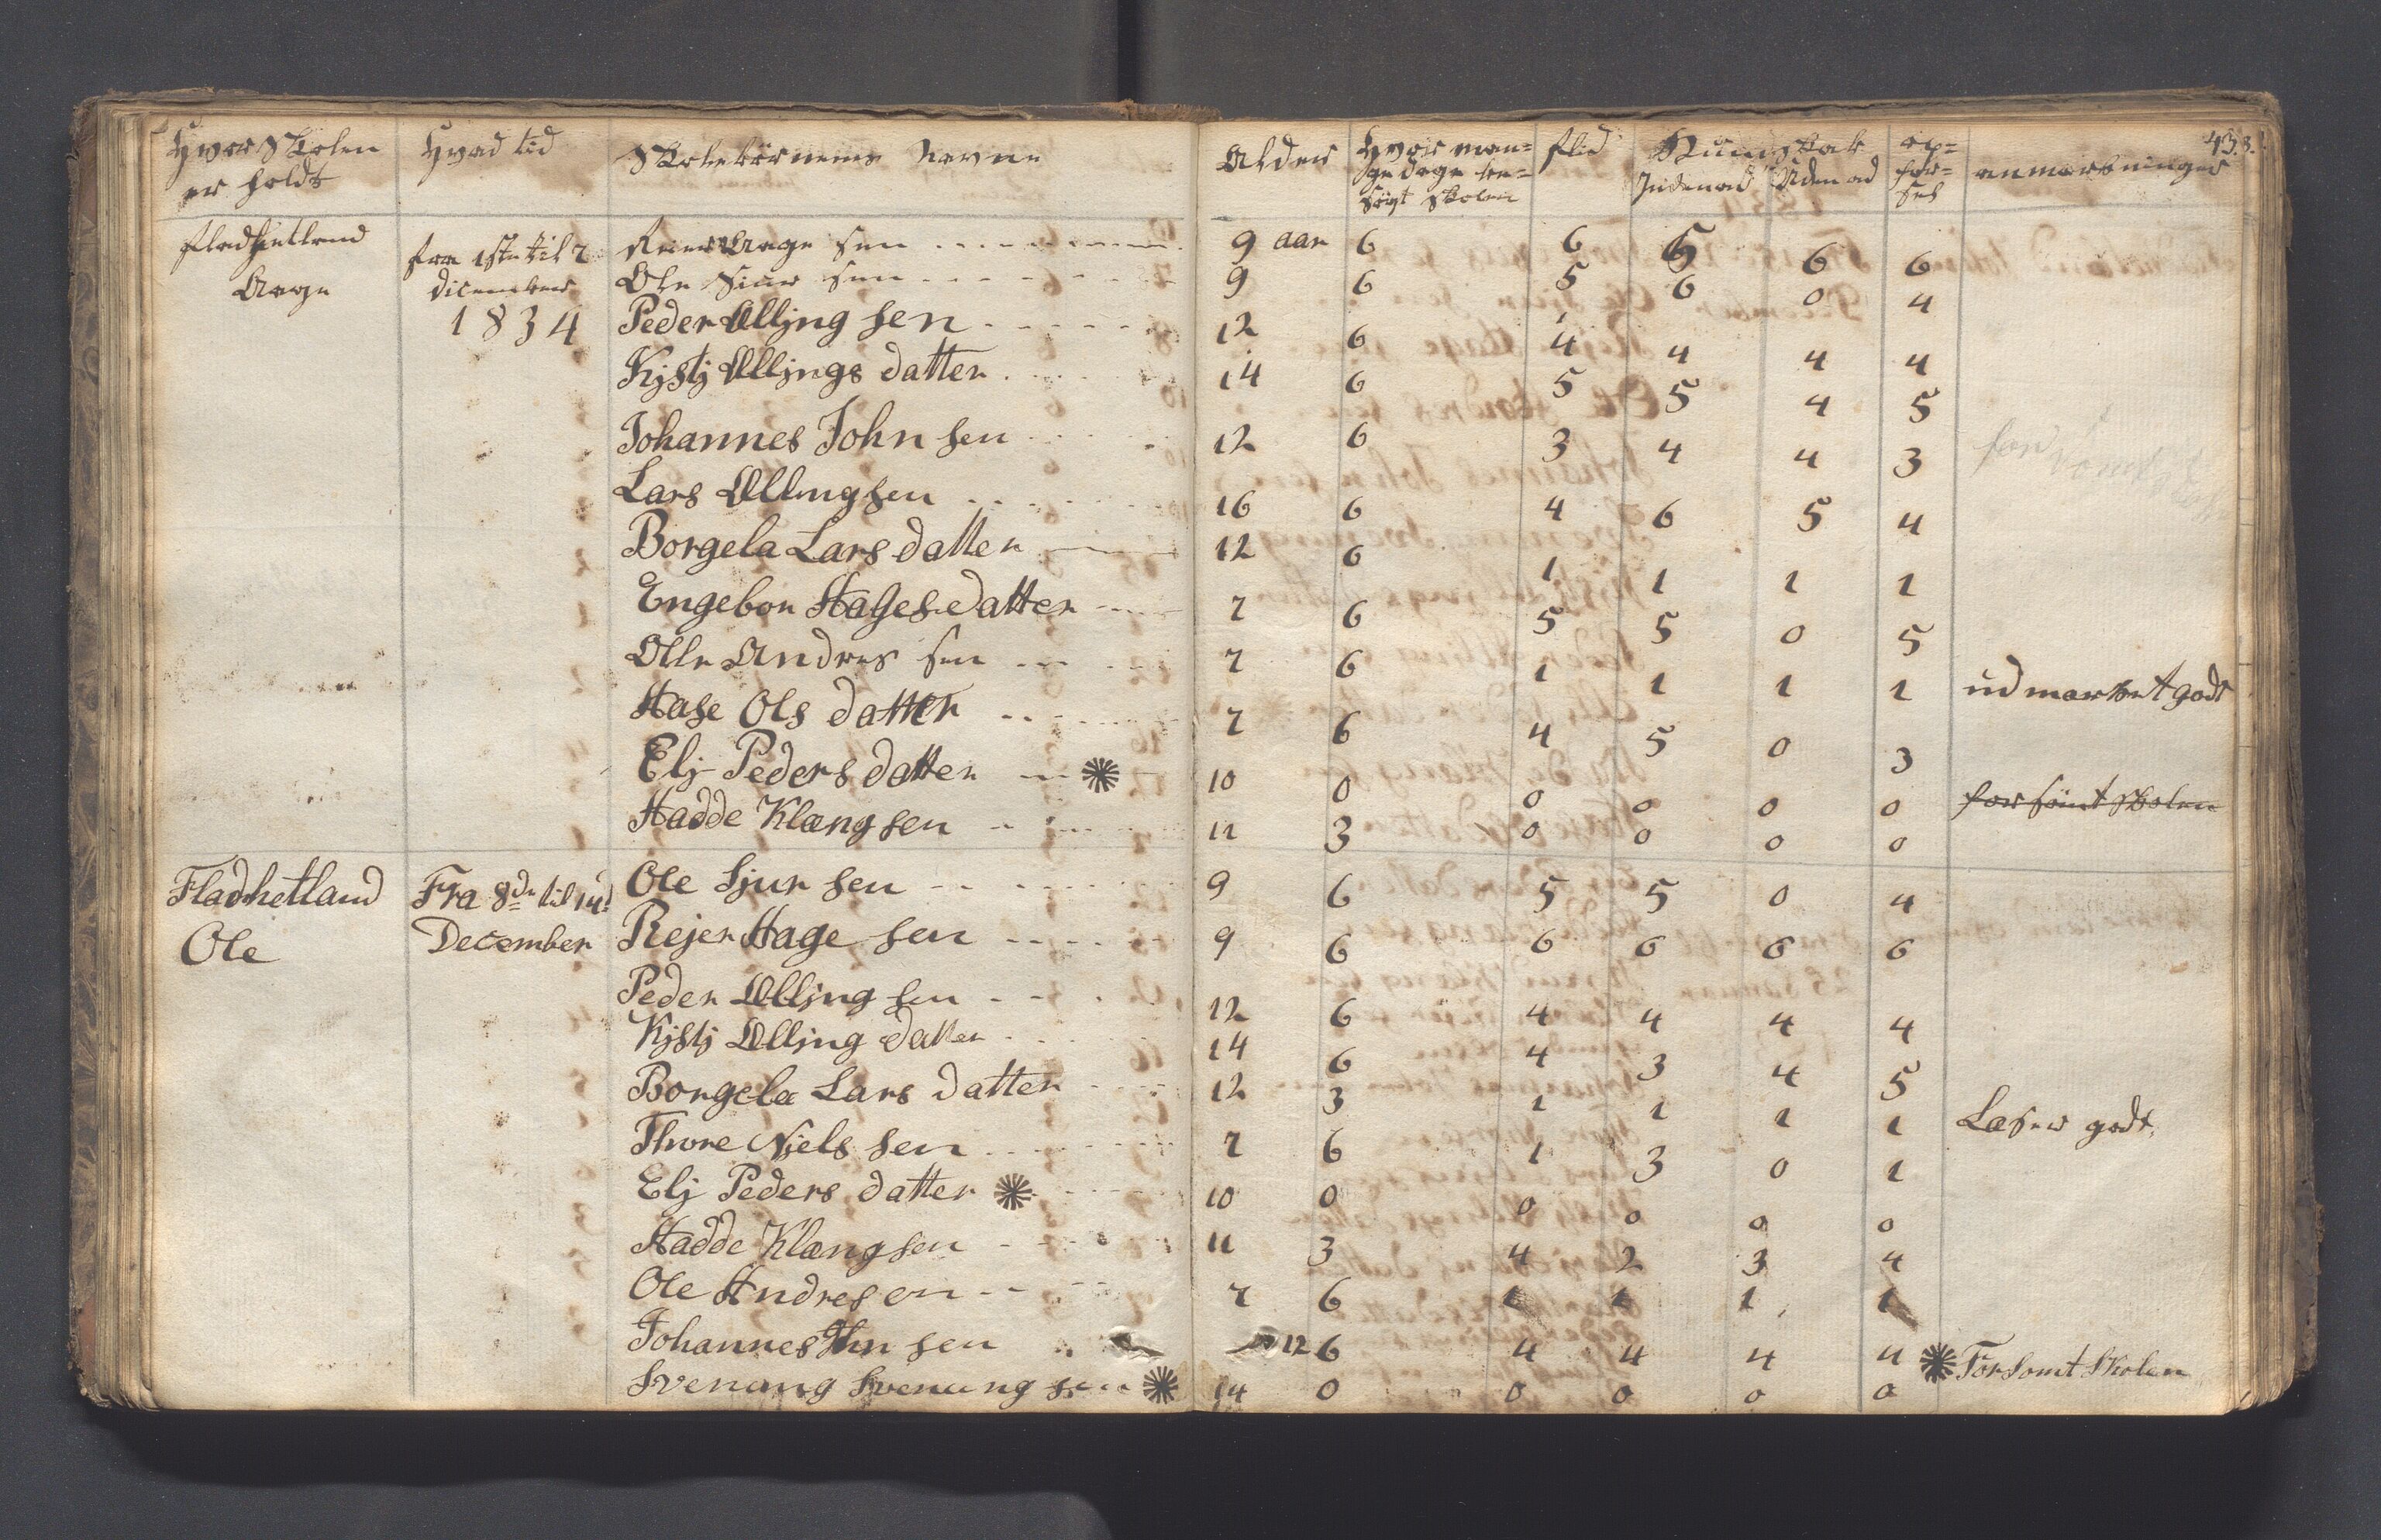 Hvor Skolen er holdt | Hvad tid | Skolebörnenes Navne | Alder | Hvor man=ge dage be=sögt Skolen | flid | Kundskab Indenad | Udenad | op=før=sel | anmærkninger 43.
fladhetland Aage | fra 1ste til 7 December 1834 | Reier Aage sen | 9 aar | 6 | 6 | 6 | 6 | 6
Ole Siur sen | 9 | 6 | 5 | 6 | 0 | 4
Peder Olljng sen | 12 | 6 | 4 | 4 | 4 | 4
Kjstj Olljngs datter | 14 | 6 | 5 | 5 | 4 | 5
Johannes John sen | 12 | 6 | 3 | 4 | 4 | 3
Lars Ollingsen | 16 | 6 | 4 | 6 | 5 | 4
Borgela Lars datter | 12 | 6 | 1 | 1 | 1 | 1
Engebor Hages datter | 7 | 6 | 5 | 5 | 0 | 5
Olle Andres sen | 7 | 6 | 1 | 1 | 1 | 1 | udmærket godt
Hase Ols datter | 7 | 6 | 4 | 5 | 0 | 3
Elj Peders datter * | 10 | 0 | 0 | 0 | 0 | 0 | forsömt Skolen
Hadde Klængsen | 11 | 3 | 0 | 0 | 0 | 0
Fladhetland Ole | Fra 8de til 14d December | Ole Sjur sen | 9 | 6 | 5 | 5 | 0 | 4
Rejer Hage sen | 9 | 6 | 6 | 6 | 6 | 6
Peder Olljng sen | 12 | 6 | 4 | 4 | 4 | 4
Kjstj Olljng datter | 14 | 6 | 4 | 3 | 4 | 5
Borgela Lars datter | 12 | 3 | 1 | 1 | 1 | 1 | Læser godt
Thore Njels sen | 7 | 6 | 1 | 3 | 0 | 1
Elj Peders datter * | 10 | 0 | 0 | 0 | 0 | 0
Hadde Klængsen | 11 | 3 | 4 | 2 | 3 | 4
Ole Andresen | 7 | 6 | 1 | 1 | 1 | 1
Johannes Jhn sen | 12 | 6 | 4 | 4 | 4 | 4 | * Forsomt Skolen
Svenung Svenung sen * | 14 | 0 | 0 | 0 | 0 | 0